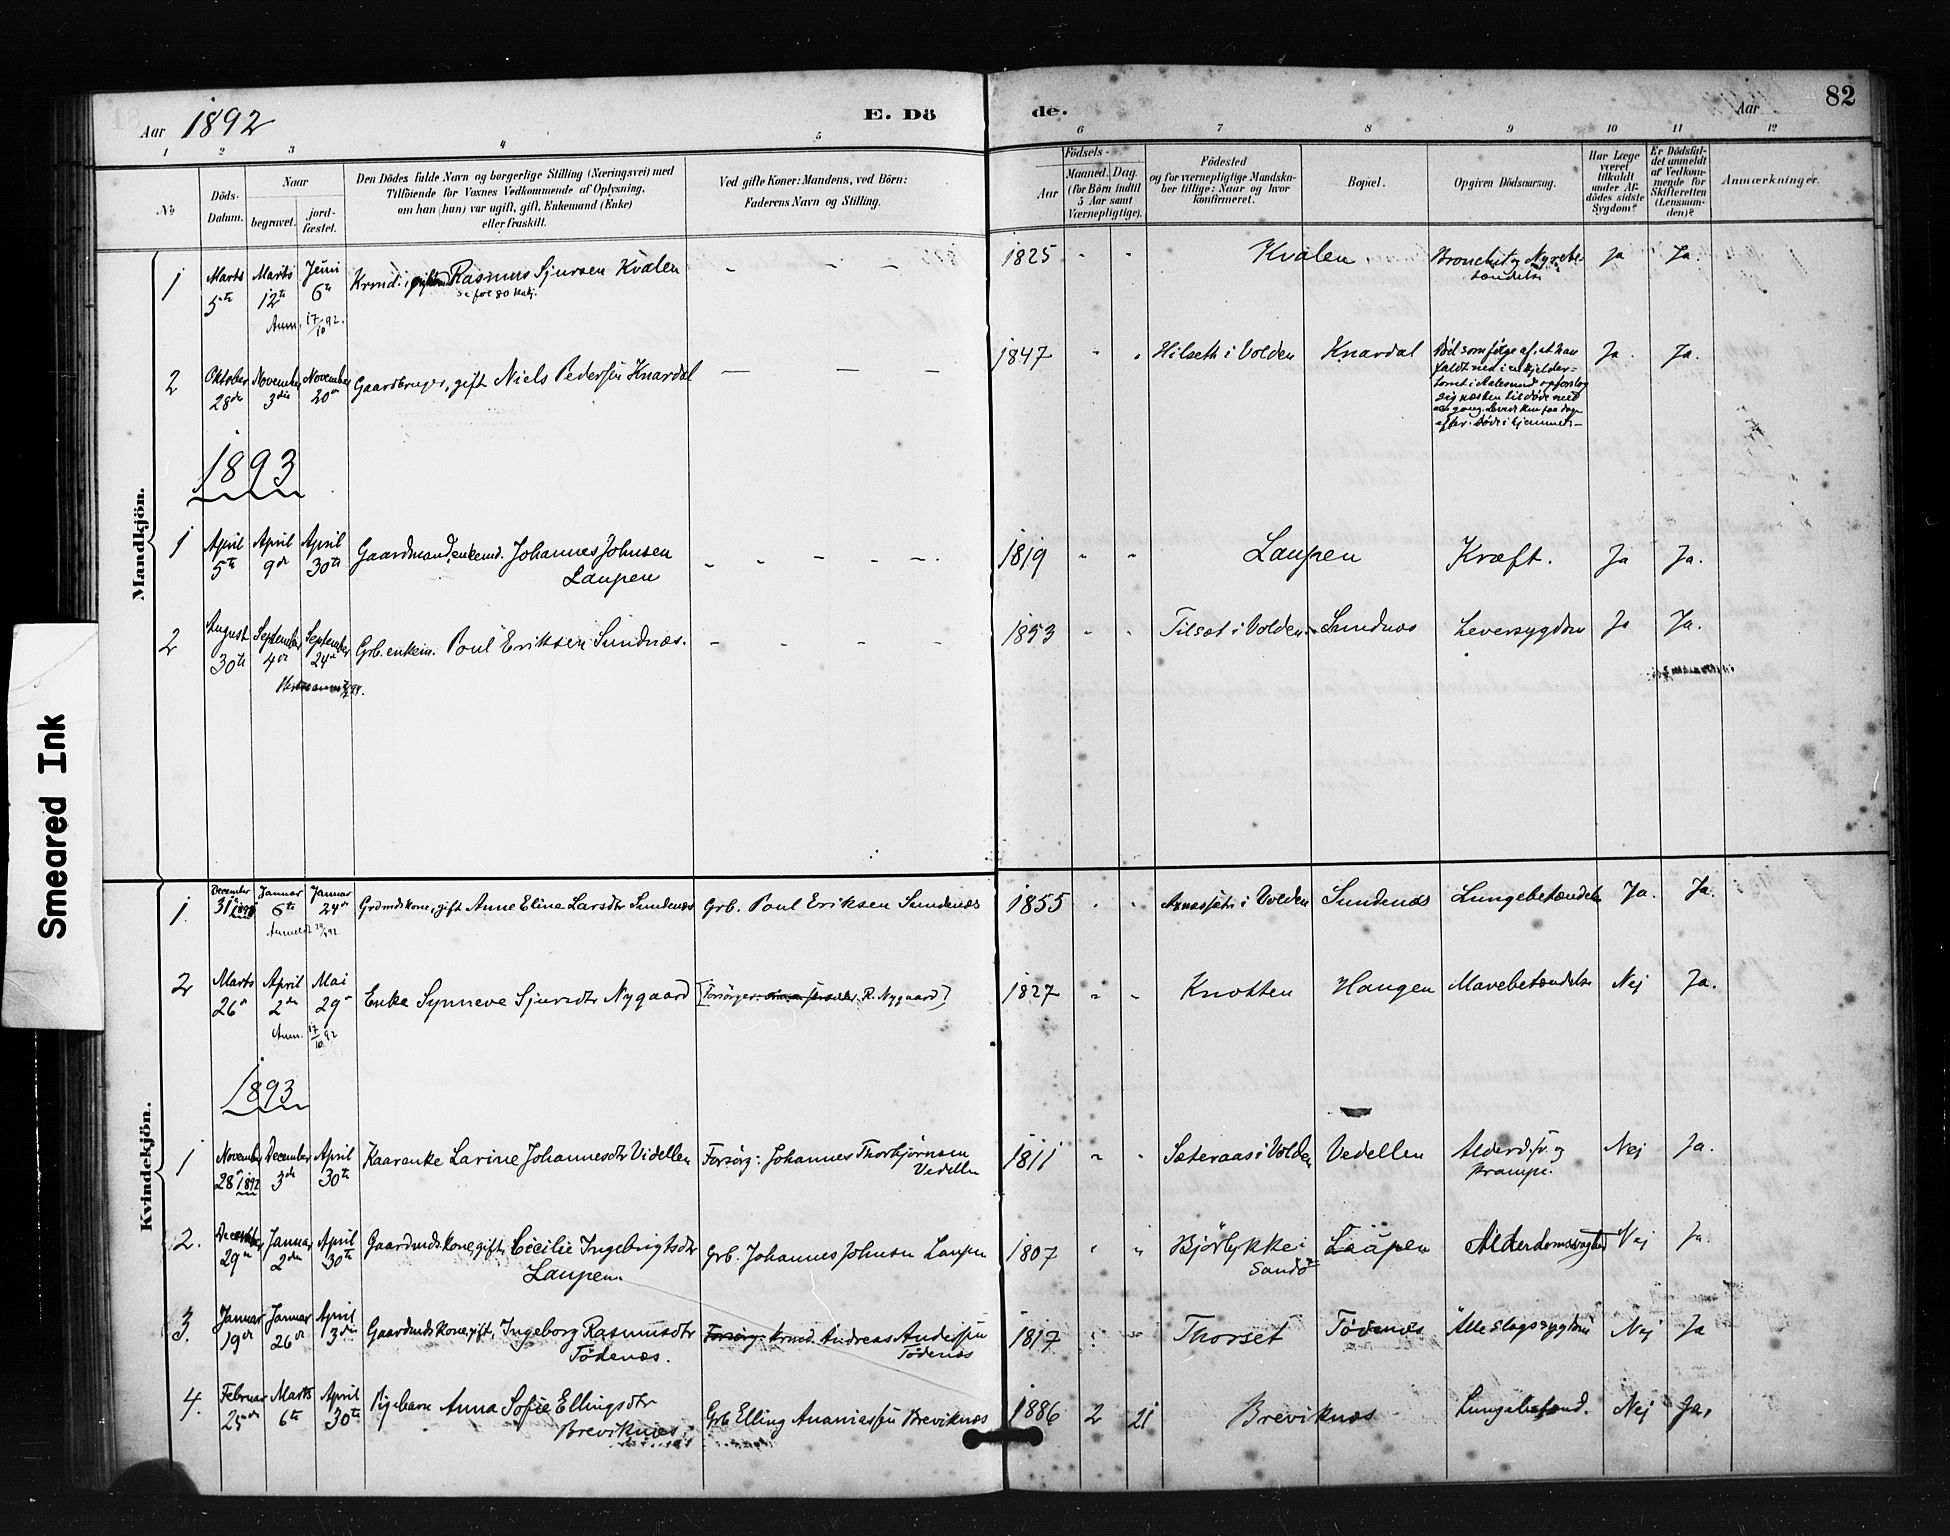 Aar 1892
E. Dö
de.
Aar
82
1 2 3 4 5 6 7 8 9 10 11 12
№
Döds-
Datum.
Naar
begravet.
jord-
fæstet.
Den Dödes fulde Navn og borgerlige Stilling (Næringsvei) med
Tilföiende for Voxnes Vedkommende af Oplysning,
om han (hun) var ugift, gift, Enkemand (Enke)
eller fraskilt.
Ved gifte Koner: Mandens, ved Börn:
Faderens Navn og Stilling.
Födsels-
Aar
Maaned.
Dag.
(for Börn indtil
5 Aar samt
Værnepligtige).
Födested
og for værnepligtige Mandska-
ber tillige: Naar og hvor
konfirmeret.
Bopæl.
Opgiven Dödsaarsag.
Har Læge
været
tilkaldt
under Af-
dödes sidste
Sygdom?
Er Dödsfal-
det anmeldt
af Vedkom-
mende for
Skifteretten
(Lensman-
den)?
Anmærkninger.
Mandkjön.
1 Marts 5te Marts 12te Juni 6te Rasmus Sjursen Kvalen - - - - 1825 - - Kvalen Bronchit og Nyrebe- Ja Ja.
tændelse
Anm. 17/10 92.
2 Oktober 28de November 3die November 20de Gaardbruger, gift Niels Pedersen Knardal — — — 1847 - - Hilseth i Volden Knardal Död som følge af, at han Ja. Ja.
faldt ned i en kjelder-
tomt i Aalesund og forslog
sig næsten til døde med
efter. Döde i hjemmet-
1893
1 April 5te April 9de April 30te Gaardmand, enkemd. Johannes Johnsen - - - - - 1819 - - Laupen Kræft. Ja Ja.
Laupen
2 August 30te September 4de September 24de Grb. enkem. Poul Eriksen Sundnæs. - - - - 1853 - - Tilset i Volden Sundnæs Leversygdom Ja Ja.
Kvindekjön.
1. December 31te Januar 6te Januar 24de Grdmds kone, gift Anne Eline Larsdtr Sundenæs Grb. Poul Eriksen Sundenæs 1855 - - i Volden Sundenæs Lungebetændelse Ja. Ja.
2 Marts 26de April 2den Mai 29de Enke Synneve Sjursdtr Nygaard [Forsörger: R. Nygaard] 1827 - - Knotten Haugen Mavebetændelse Nej Ja.
Anm. 17/10 92
1893
1 November 28de 1892 December 3die April 30te Kaarenke Larine Johannesdtr Videllen Forsörg: Johannes Thorbjørnsen 1811 - - Sæteraas i Volden Vedellen Alderd.sv. og Nej Ja.
Vedellen krampe.
2. December 29de Januar 2den April 30te Gaardmds kone, gift, Cecilie Ingebrigtsdtr Grb. Johannes Johnsen Laupen 1807 - - Björlykke i Laupen Alderdomssvaghed Nej Ja.
Laupen. Sandö
3. Januar 19de Januar 26de April 3die Gaardmds kone, gift, Ingeborg Rasmusdtr Forsörg: krmd. Andreas Andersen 1817 - - Thorset Tödenes Alle slags sygdom Nej Ja
Tödenæs. Tödenæs
4. Februar 25de Marts 6te April 30te Pigebarn Anna Sofie Ellingsdtr Grb Elling Ananiassen Breviknæs 1886 2 21 Breviknæs Lungebetænd. Nej Ja.
Breviknæs
Smeared Ink